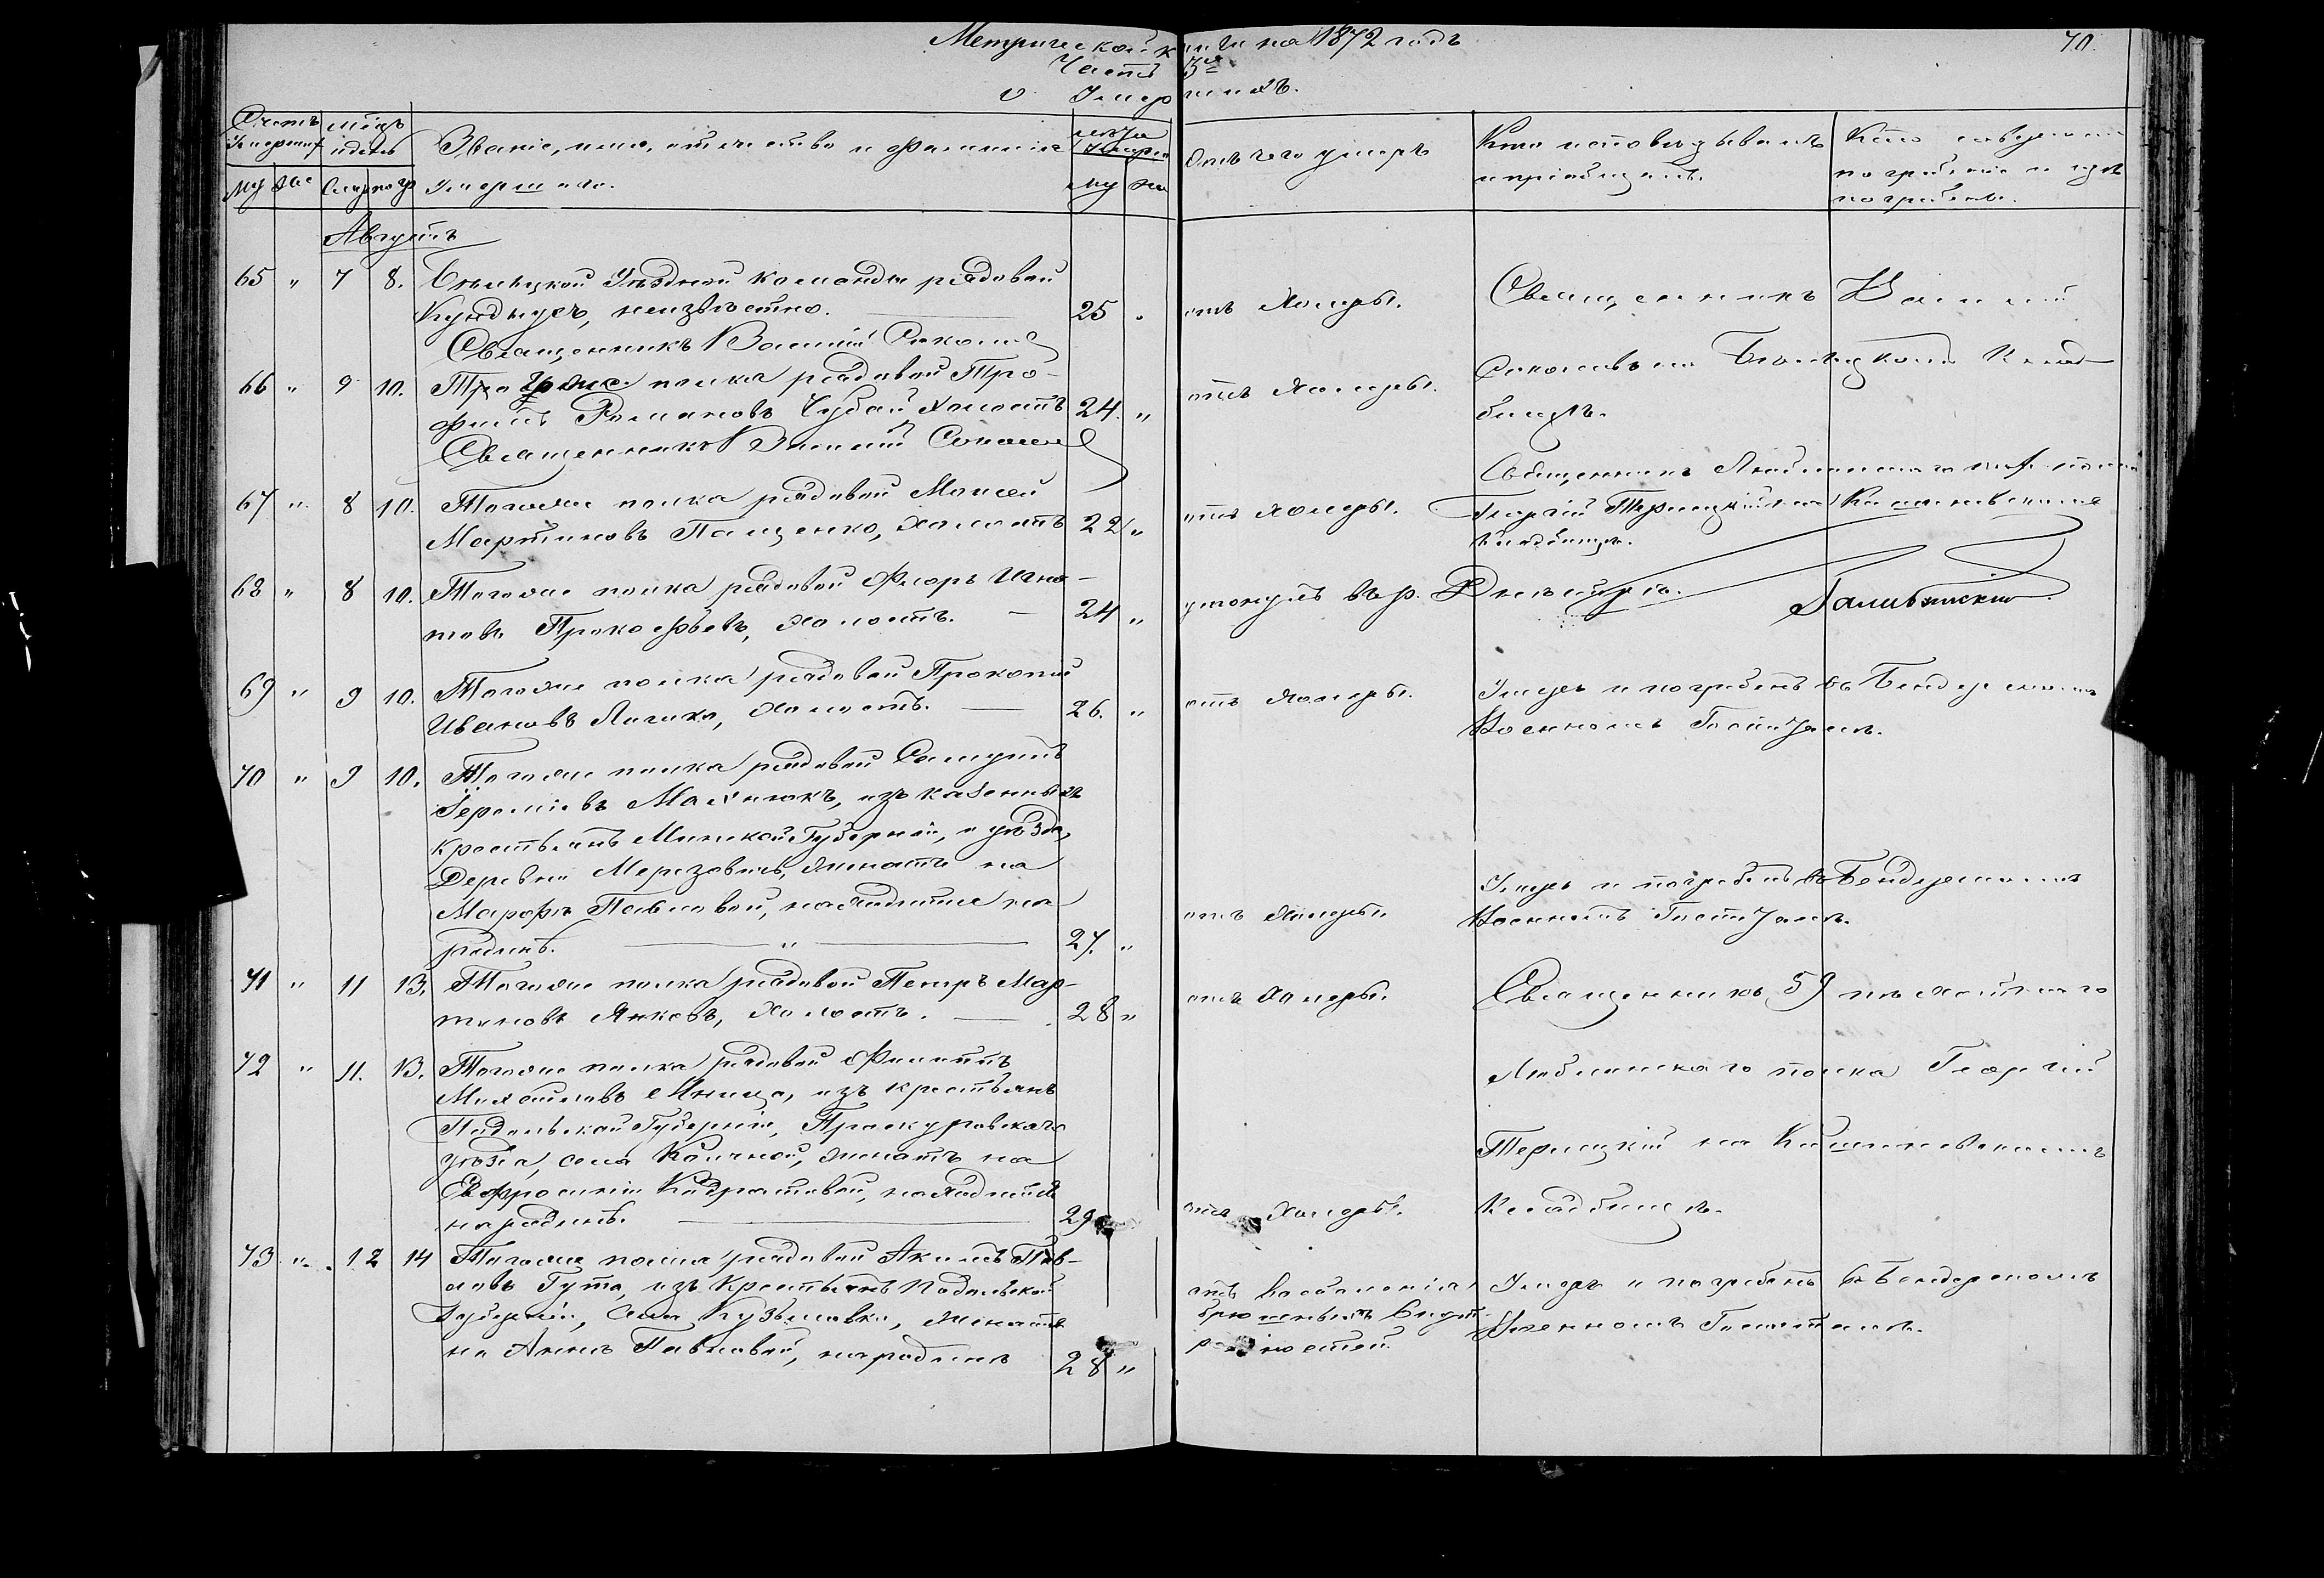 Метрической книги на 1872 годъ
70.
Часть 3я
о Умершихъ.
Счетъ умершихъ
мѣсяцъ и день
Званіе, имя, отчество и фамилія умершаго.
лѣта умерш
Отъ чего умеръ
Кто исповѣдывалъ и пріобщалъ.
Кто совершалъ погребеніе и гдѣ погребены.
Му Же Смер погр му же
Августъ
65 " 7 8. Бѣлецкой Уѣздной команды рядовой
неизвѣстно. 25 " отъ холеры. Священникъ Василій
Священникъ Василій Соколов
66 " 9 10. полка рядовой Тро-
фимъ Романовъ Чубай холостъ 24. " отъ холеры. кладбищѣ.
Священникъ Василій Соколов
67 " 8 10. Тогоже полка рядовой Моисей
Мартиновъ Пащенко, холостъ 22 " отъ холеры. Священникъ Люблинскаго полка
Георгій Терлецкій на Кишиневскомъ
кладбищѣ.
68 " 8 10. Тогоже полка рядовой Флоръ Игна-
товъ Прокофьевъ, холостъ. 24 " утонулъ въ р. Днѣстрѣ.
69 " 9 10. Тогоже полка рядовой Прокопій
Ивановъ холостъ. 26. " отъ холеры. Умеръ и погребенъ въ Бендерскомъ
Военномъ Госпиталѣ.
70 " 9 10. Тогоже полка рядовой Самуилъ
Іереміевъ Махнюкъ, изъ казенныхъ
крестьянъ Минской Губерніи, и уѣзда,
Деревни женатъ на
Марѳѣ Павловой, находится на
родинѣ. " 27. " отъ холеры. Умеръ и погребенъ въ Бендерскомъ
Военномъ Госпиталѣ.
71 " 11 13. Тогоже полка рядовой Петръ Мар-
тиновъ Янковъ, холостъ. 28 " отъ холеры. Священникъ 59 пѣхотнаго
72 " 11. 13. Тогоже полка рядовой Филиппъ
Михайловъ изъ крестьянъ Люблинскаго полка Георгій
Подольской Губерніи, Проскуровскаго
уѣзда, села женатъ на Терлецкій на Кишиневскомъ
Евфросиніи Кодратовой, находится
на родинѣ. 29 отъ холеры. Кладбищѣ.
73 " 12 14 Тогоже полка рядовой Акимъ Пав-
ловъ Гута, изъ крестьянъ Подольской
Губерніи, села Кузьмовки, женатъ
на Аннѣ Павловой, на родинѣ 28 "
отъ воспаленія
брюшныхъ внут
ренностей.
Умеръ и погребенъ въ Бендерскомъ
Военномъ Госпиталѣ.